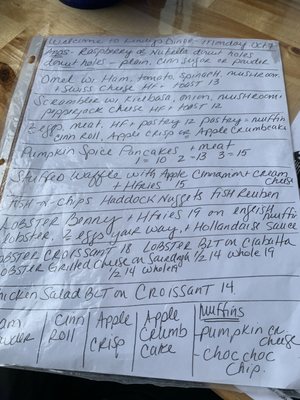 Welcome to Diner - Monday Oct 9
Apps - Raspberry or Nutella donut holes
donut holes - plain, cinn sugar or powder
Omel w/ Ham, tomato, spinach, mushroom
+ Swiss cheese HF + toast 13
Scrambler w/ Kielbasa, onion, mushroom +
pepperjack cheese HF + toast 12
2 eggs meat, HF + pastry 12 pastry = muffin
cinn roll, Apple crisp or Apple crumbcake
Pumpkin Spice Pancakes + meat
1 = 10 2 - 13 3 = 15
Stuffed Waffle with Apple Cinnamon + cream cheese
+ HFries 15
Fish-n-Chips Haddock Nuggets Fish Reuben
LOBSTER Benny + HFries 19 on english muffin
lobster, 2 eggs your way, + Hollandaise Sauce
LOBSTER CROISSANT 18 LOBSTER BLT on Ciabatta
LOBSTER Grilled Cheese on Sourdough 1/2 14 whole 19
1/2 14 whole 19
Chicken Salad BLT on CROISSANT 14
Cinn Roll
Apple Crisp
Apple Crumb Cake
Muffins
- pumpkin cr cheese
- choc choc chip